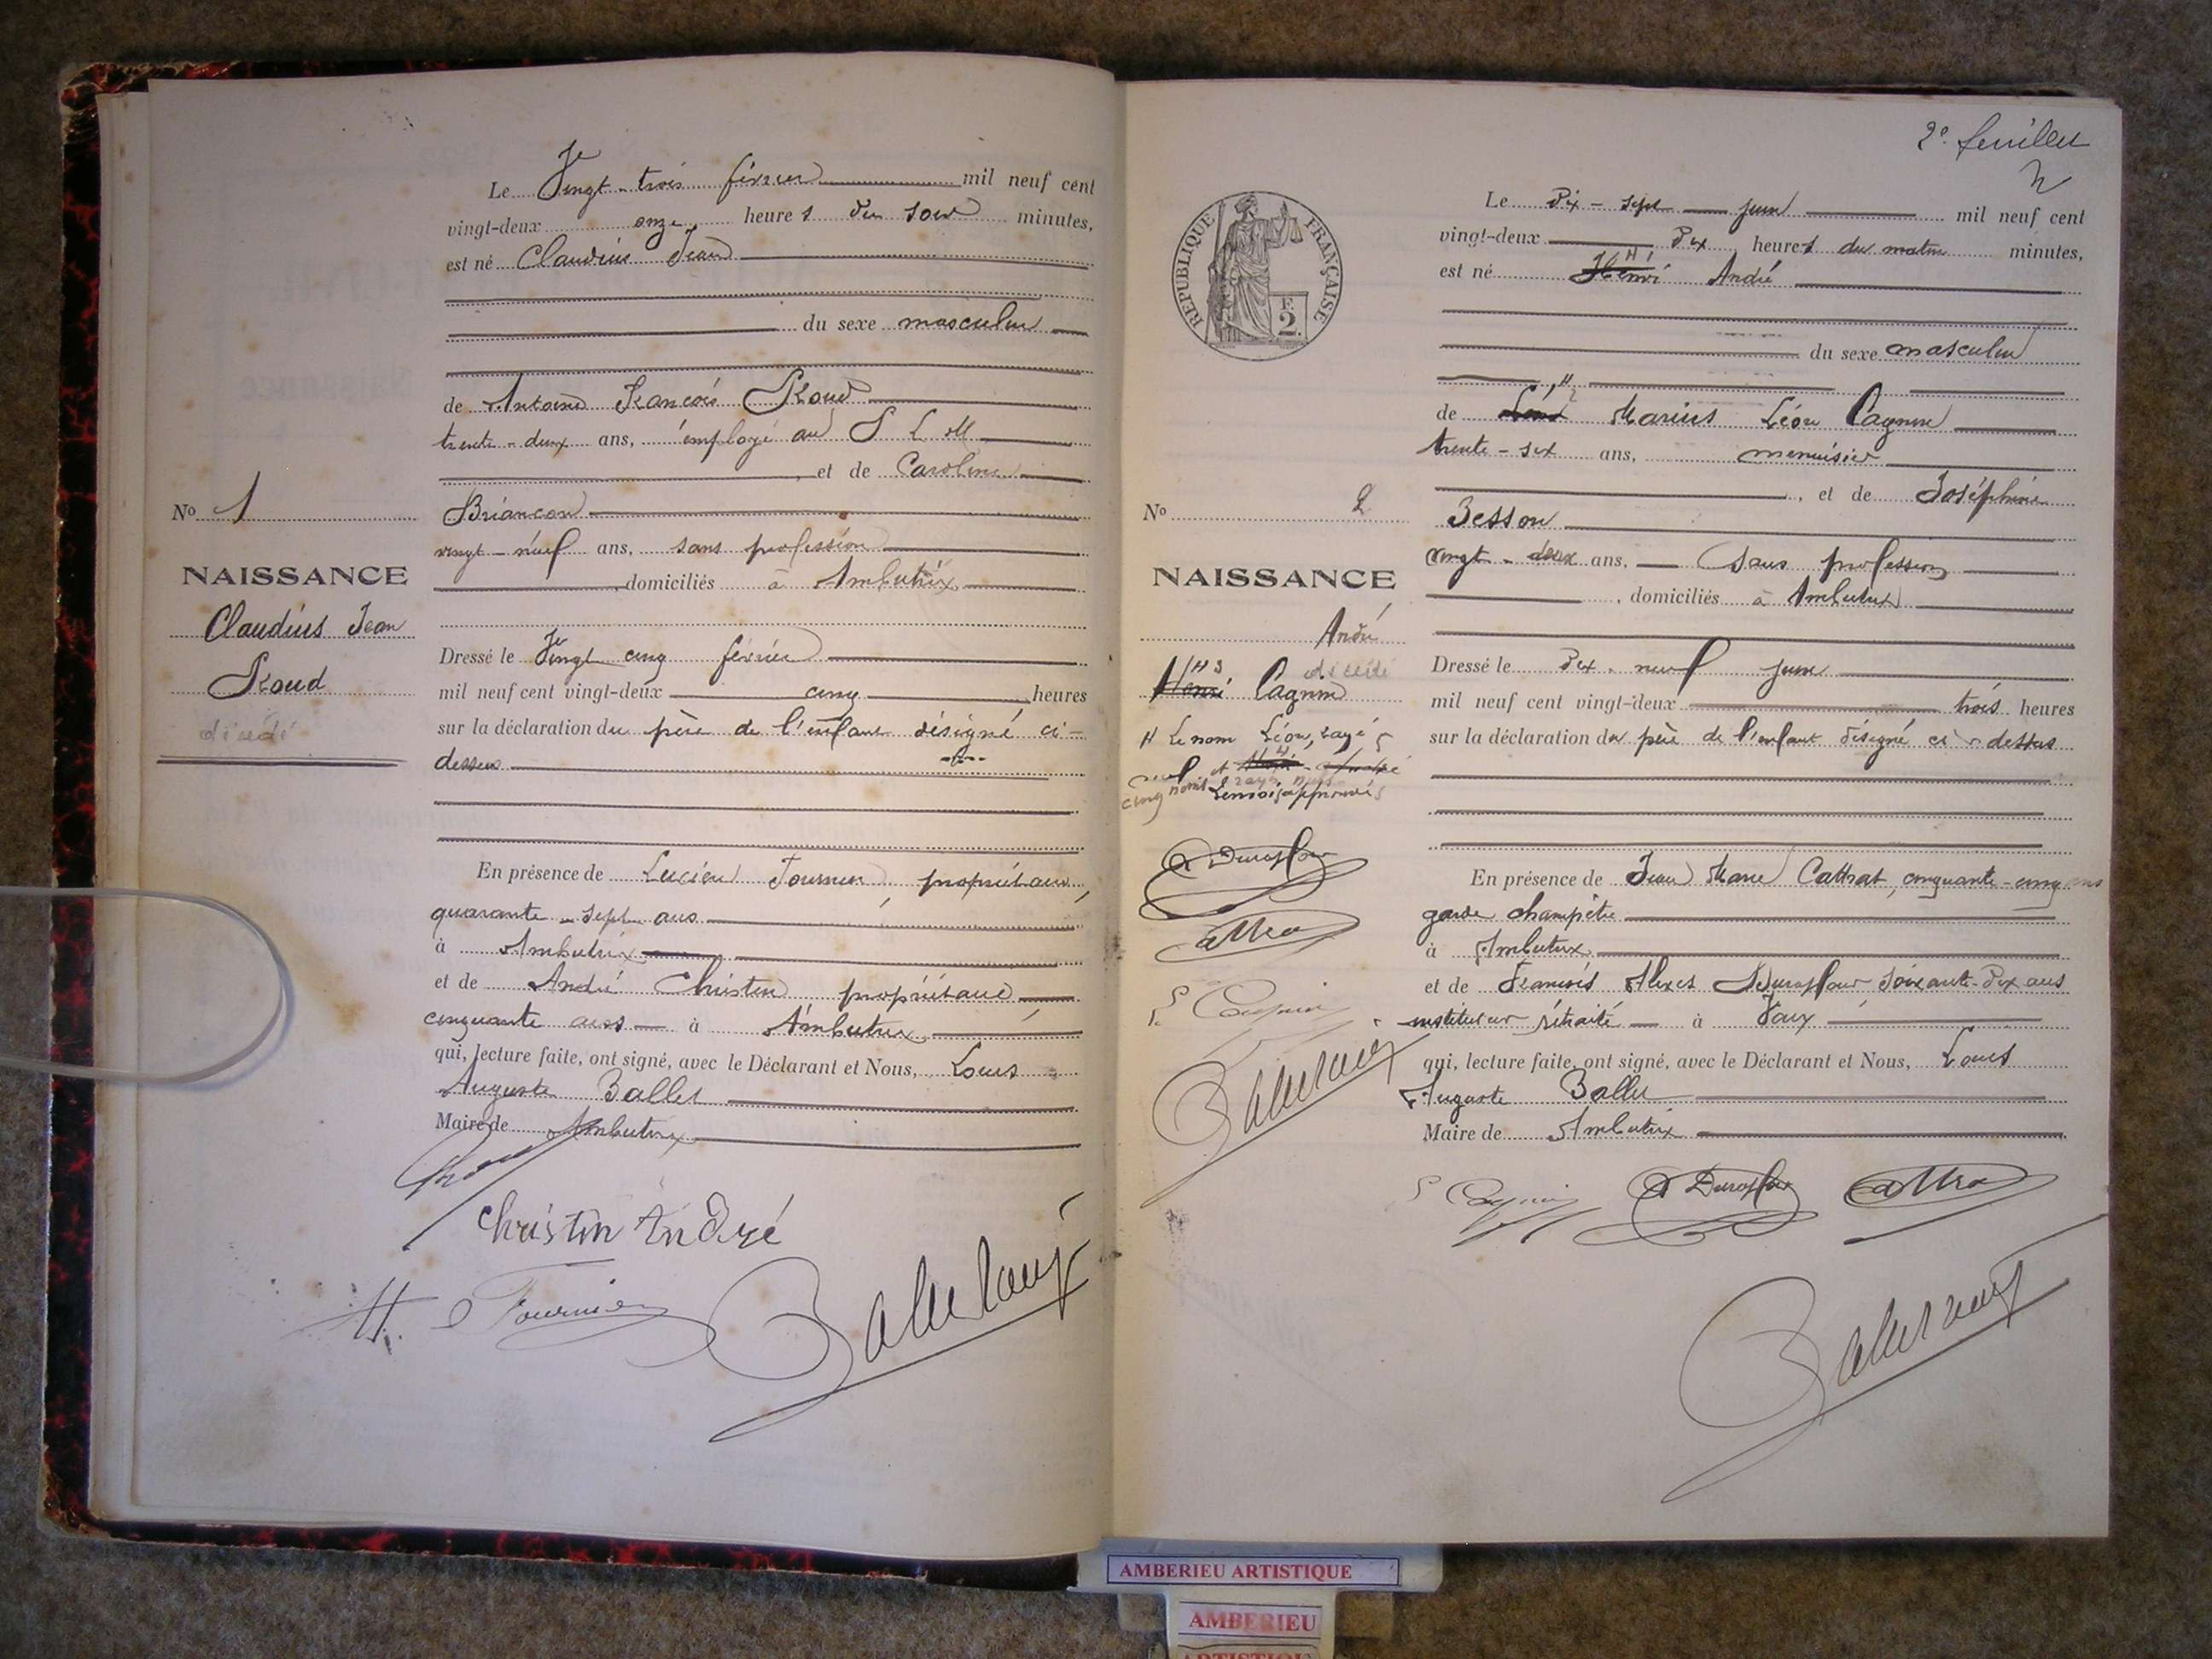 Le Vingt-trois février mil neuf cent
vingt-deux onze heures du soir minutes,
est né Claudius Jean
du sexe masculin
de Antoine François Roud
trente-deux ans, employé au P L M
et de Caroline
Briançon
vingt-neuf ans, sans profession
domiciliés à Ambutrix
Dressé le Vingt cinq février
mil neuf cent vingt-deux cinq heures
sur la déclaration du père de l'enfant désigné ci-
dessus
En présence de Lucien Fournier, propriétaire,
quarante-sept ans
à Ambutrix
et de André Christin propriétaire
cinquante ans à Ambutrix
qui, lecture faite, ont signé, avec le Déclarant et Nous, Louis
Auguste Ballet
Maire de Ambutrix
Christin André
Fournier
No 1
NAISSANCE
Claudius Jean
Roud
décédé
2e feuillet
2
RÉPUBLIQUE FRANÇAISE
F.
2
Le Dix-sept juin mil neuf cent
vingt-deux Dix heures du matin minutes,
est né Henri André
du sexe masculin
de Léon Marius Léon Cagnin
trente-six ans, menuisier
, et de Joséphine
Besson
vingt-deux ans, sans profession
, domiciliés à Ambutrix
Dressé le Dix-neuf juin
mil neuf cent vingt-deux trois heures
sur la déclaration du père de l'enfant désigné ci-dessus
En présence de Jean Marie Cattrat, cinquante-cinq ans
garde champêtre
à Ambutrix
et de François Alexis Duraffour soixante-Dix ans
instituteur retraité à Vaux
qui, lecture faite, ont signé, avec le Déclarant et Nous, Louis
Auguste Ballet
Maire de Ambutrix
No 2
NAISSANCE
André
décédé
Henri Cagnin
Le nom Léon, rayé
nul et
cinq mots rayés nuls
renvois approuvés
Duraffour
Cagnin
Cagnin
Duraffour
AMBERIEU ARTISTIQUE
AMBERIEU
ARTISTIQUE